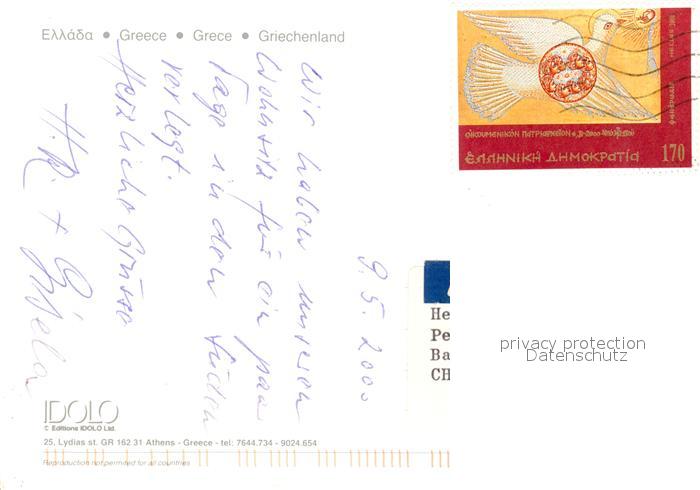 Ελλάδα • Greece • Grece • Griechenland
9. 5. 2000
Wir haben unseren
Wohnsitz für ein paar
Tage in den Süden
verlegt.
Herzliche Grüsse
H.R. + Gisela
ΕΛΛΗΝΙΚΗ ΔΗΜΟΚΡΑΤΙΑ 170
He
Pe
Ba
CH
privacy protection
Datenschutz
IDOLO
© Editions IDOLO Ltd.
25, Lydias st. GR 162 31 Athens - Greece - tel: 7644.734 - 9024.654
Reproduction not permited for all countries